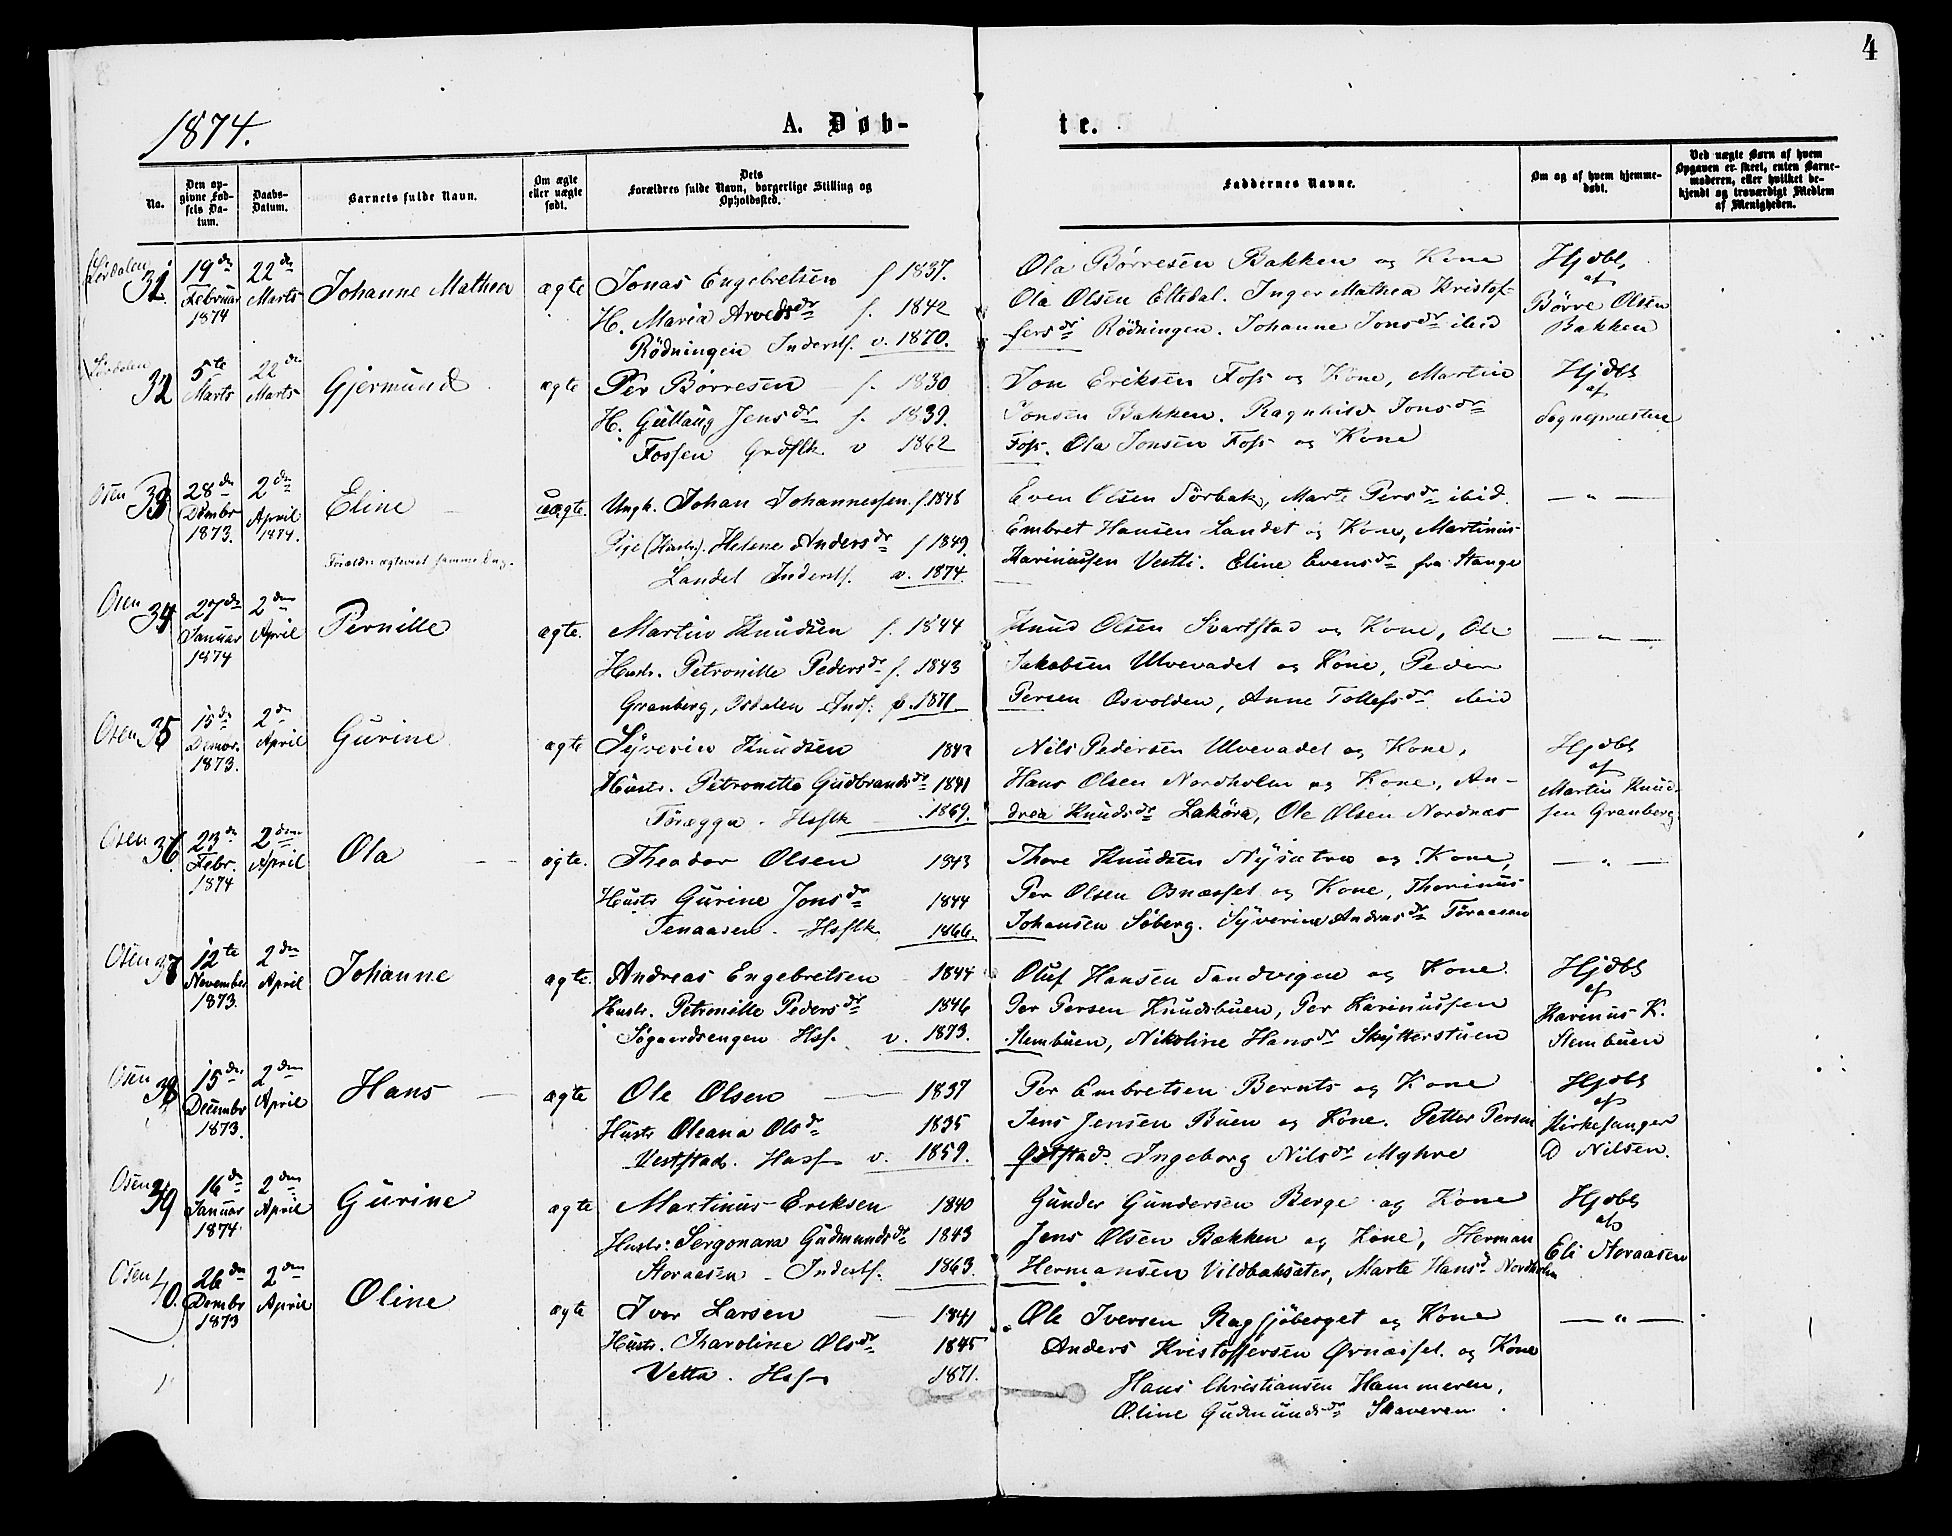 4
1874.
A. Døb-
te.
No.
Den op-
givne Fød-
sels Da-
tum.
Daabs-
Datum.
Barnets fulde Navn.
Om ægte
eller uægte
født.
Dets
Forældres fulde Navn, borgerlige Stilling og
Opholdssted.
Faddernes Navne.
Om og af hvem hjemme-
døbt.
Ved uægte Børn af hvem
Opgaven er skeet, enten Barne-
moderen, eller hvilket be-
kjendt og troværdigt Medlem
af Menigheden.
31
19de
Februar
1874
22de
Marts
Johanne Mathea
ægte
Jonas Engebretsen f 1837.
H. Maria Arvedsdr f. 1842
Rödningen Inderstf. v. 1870.
Ola Börresen Bakken og Kone
Ola Olsen Elledal. Inger Mathea Kristof-
fersdr Rödningen. Johanne Jonsdr ibid
Hjdbt.
af
Börre Olsen
Bakken
32
5te
Marts
22de
Marts
Gjermund
ægte
Per Börresen f. 1830
H. Gullaug Jensdr f. 1839.
Fossen Grdflk v 1862
Jon Eriksen Foss og Kone, Martin
Jonsen Bakken. Ragnhild Jonsdr
Foss. Ola Jonsen Foss og Kone
Hjdbt
af
Sognepræsten
Osen
33
28de
Dcmbr
1873.
2den
April
1874.
Eline
uægte.
Ungk. Johan Johannessen. f. 1848
Pige (Hustr). Helene Andersdr f 1849.
Landet Inderstf. v. 1874.
Even Olsen Sörbak, Marte Persdr ibid.
Embret Hansen Landet og Kone, Martinus
Karinussen Vestli. Eline Evensdr fra Stange
— " —
Forældre ægteviet samme Dag.
Osen
34
27de
Januar
1874
2den
April
Pernille
ægte.
Martin Knudsen f. 1844
Hustr. Petronille Pedersdr f. 1843
Granberg, Isdalen Indf. v. 1871.
Knud Olsen Svartstad og Kone, Ole
Jakobsen Ulvevadet og Kone, Peder
Persen Osvolden, Anne Tollefsdr ibid
— " —
Osen
35
15de
Dcmbr.
1873.
2den
April
Gurine
ægte
Syverin Knudsen 1842
Hustr. Petronille Gudbrandsdr 1841
Hsflk 1869.
Nils Pedersen Ulvevadet og Kone,
Hans Olsen Nordholm og Kone, An-
drea Knudsdr Laköra, Ole Olsen Nordnæs
Hjdbt
af
Martin Knud-
sen Granberg
Osen
36
23de
Febr.
1874
2den
April
Ola
ægte.
Theodor Olsen 1843
Hustr Gurine Jonsdr 1844
Tenaasen. Hsflk 1866.
Thore Knudsen Nysætre og Kone,
Per Olsen Osnæsset og Kone, Thorinus
Johansen Söberg. Syverine Andrasdr Toraasen
— " —
Osen
37
12te
November
1873.
2den
April
Johanne
ægte.
Andreas Engebretsen 1844
Hustr. Petronille Pedersdr 1846
Sögaardsengen Hsf. v. 1873.
Oluf Hansen Sandvigen og Kone
Per Persen Knudsbuen, Per Karinussen
Stembuen, Nikoline Hansdr Skytterstuen
Hjdbt
af
Karinus K.
Stembuen
Osen
38
15den
Decembr
1873.
2den
April
Hans
ægte
Ole Olsen — 1837
Hustr Oleana Olsdr 1835
Vestad. Husf v. 1859.
Per Embretsen Bernts og Kone
Jens Jensen Buen og Kone. Petter Persen
Östad. Ingeborg Nilsdr Myhre
Hjdbt
af
Kirkesanger
O Nilsen.
Osen
39
16de
Januar
1874.
2den
April
Gurine
ægte
Martinus Eriksen 1840
Hustr. Sergonara Gudmundsdr 1843
Storaasen — Inderstf. 1863.
Gunder Gundersen Berge og Kone
Jens Olsen Bækken og Kone, Herman
Hermansen Vildbaksæter, Marte Hansdr Nordholm
Hjdbt
af
Eli Storaasen
Osen
40.
26de
Dcmbr
1873
2den
April
Oline
ægte
Iver Larsen — 1841
Hustr. Karoline Olsdr 1845
Vetta. Hsf 1871.
Ole Iversen Ragsjöberget og Kone
Anders Kristoffersen Örnæsset og Kone
Hans Christiansen Hammeren,
Oline Gudmundsdr Skaveren.
— " —